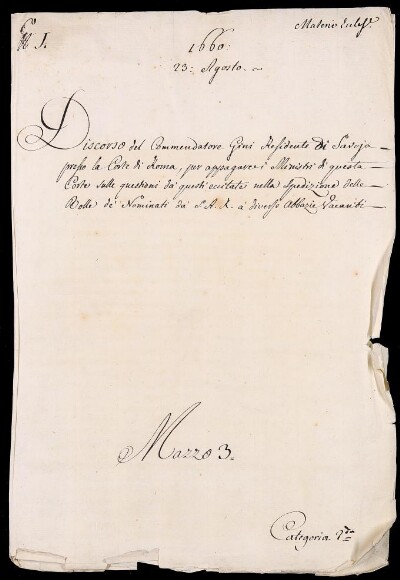 N. 1.
Materie Eccles.
1660.
23. Agosto.
Discorso del Commendatore Gini Residente di Savoja
presso la Corte di Roma, per appagare i Ministri di questa
Corte sulle questioni da questi eccitate nella spedizione delle
Bolle de' Nominati da S. A. R. a diverse Abbazie Vacanti
Mazzo 3.
Categoria 2.da